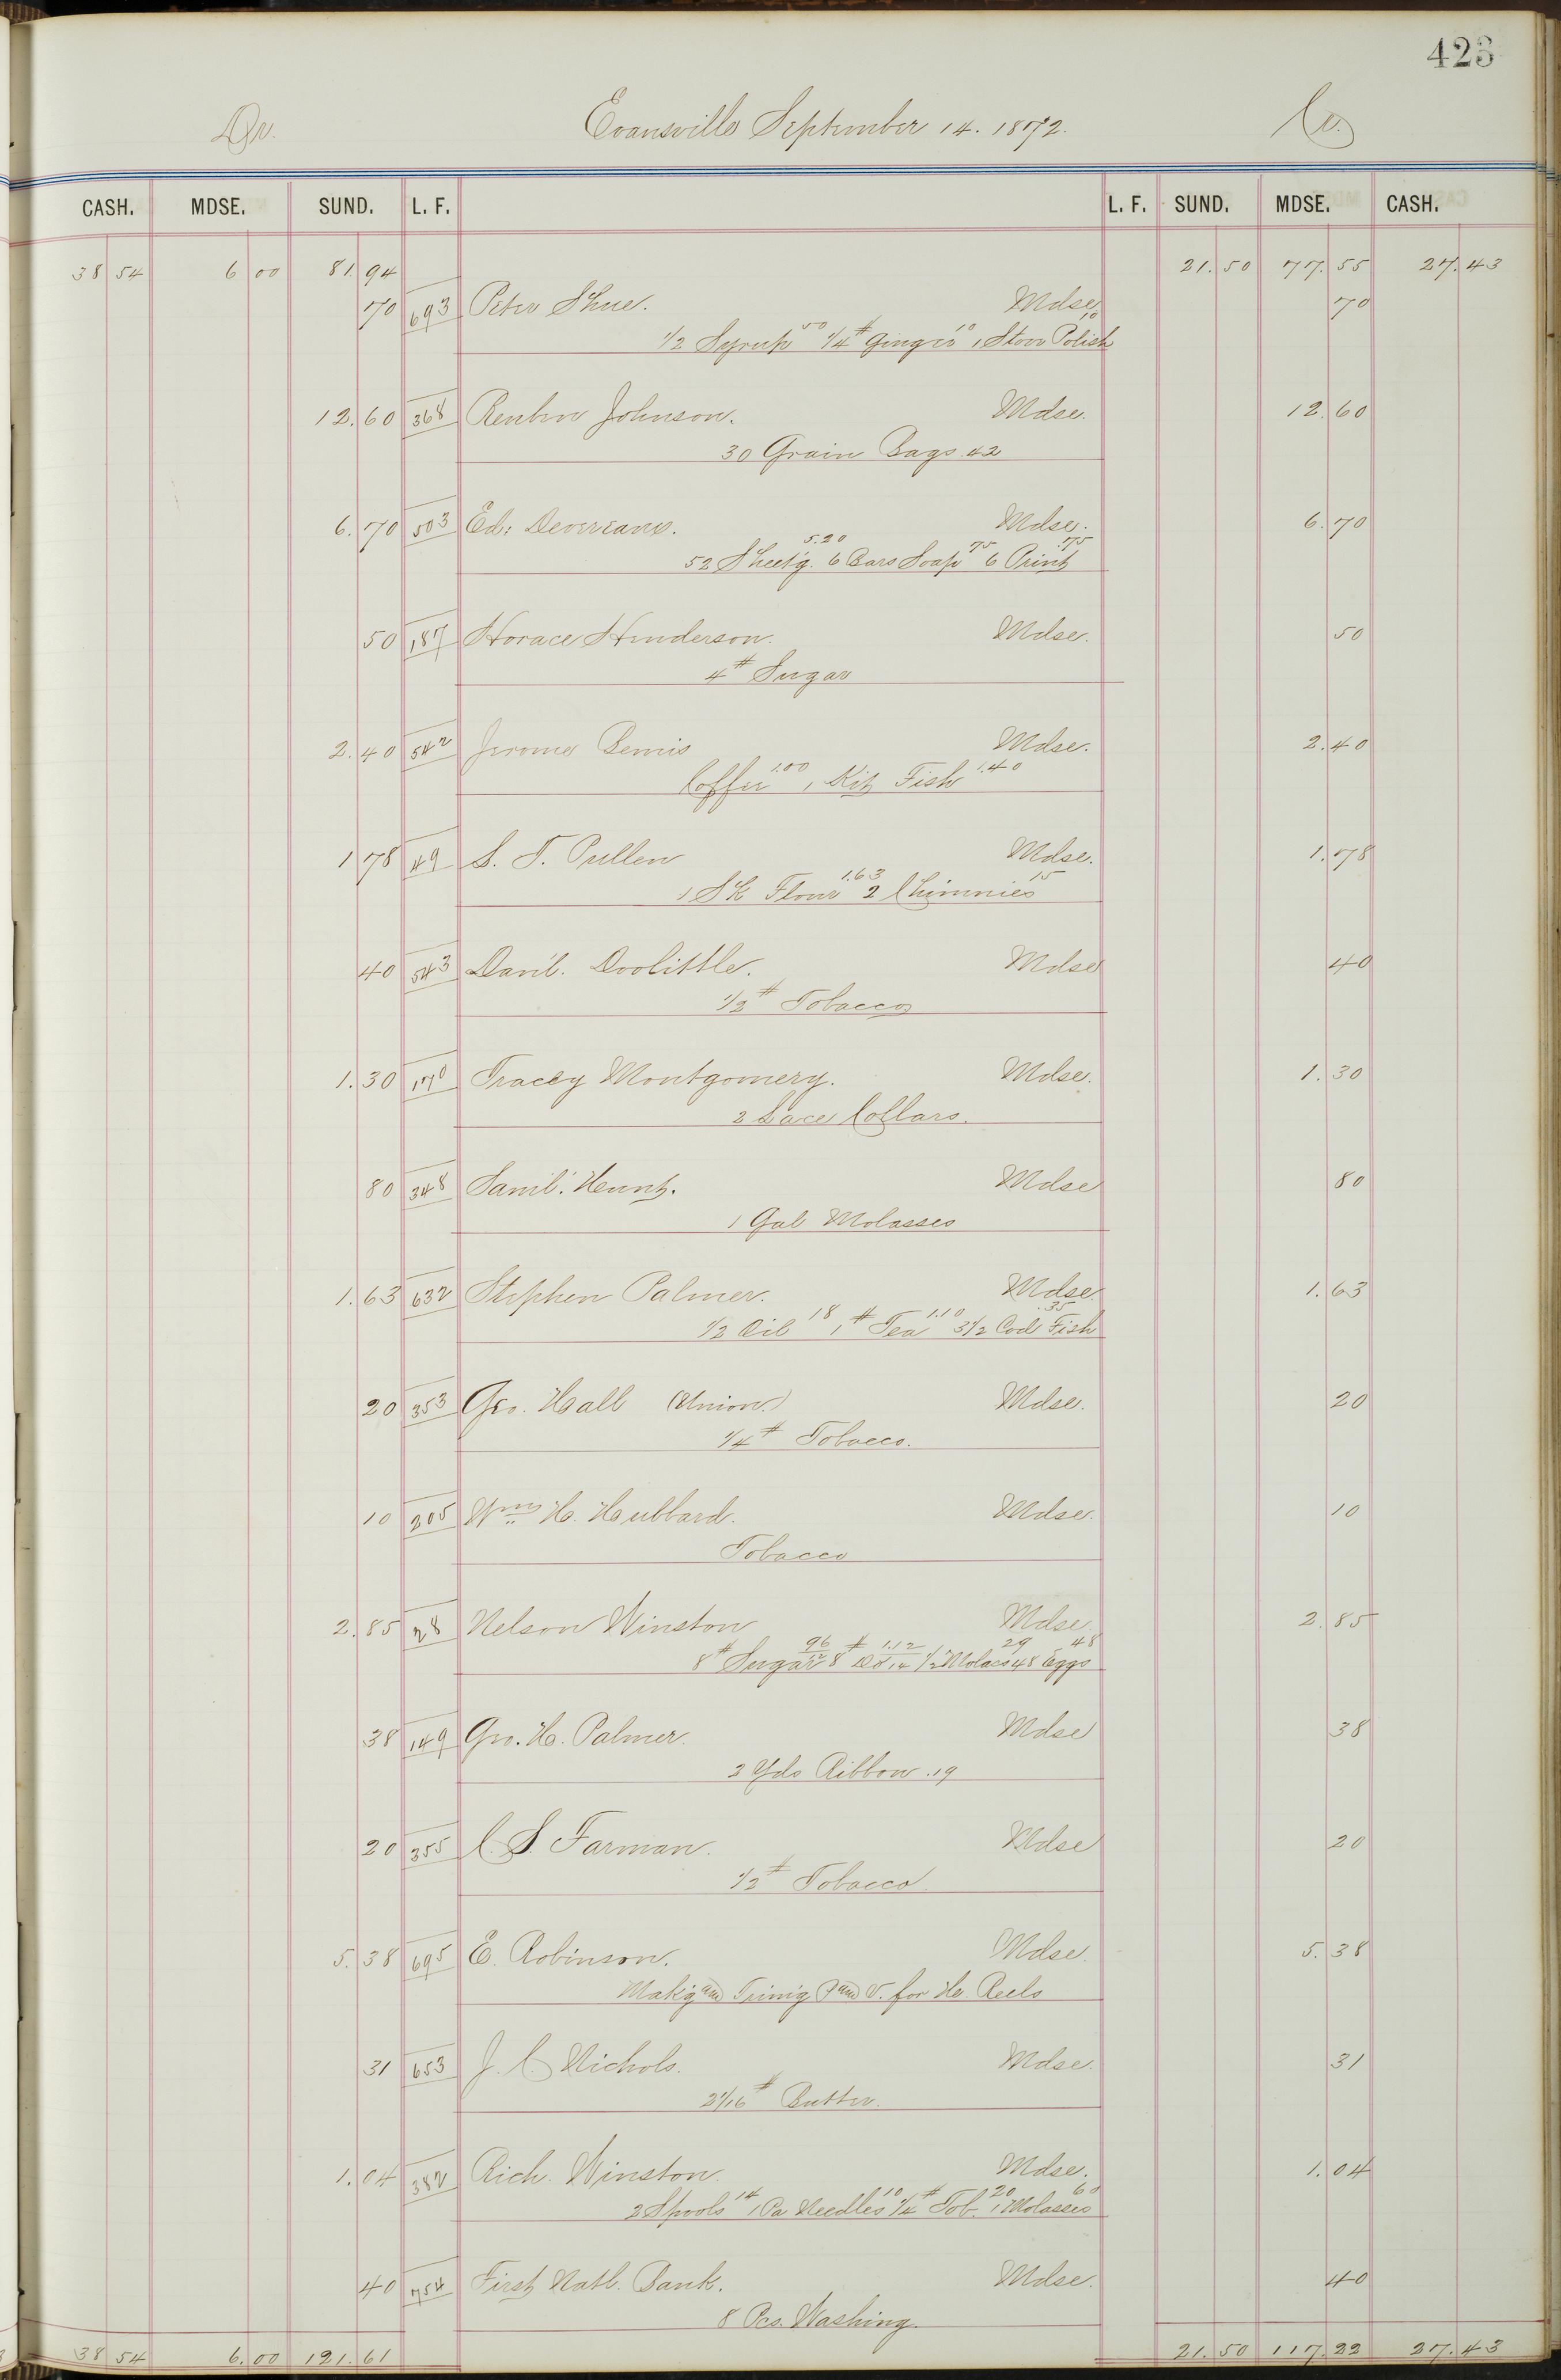 423
Dr. Evansville September 14. 1872. Cr.
CASH. MDSE. SUND. L. F. L. F. SUND. MDSE. CASH.
38 54 6 00 81.94 21.50 77.55 27.43
70 693 Peter Shue. Mdse. 70
1/2 Syrup 50 1/4 # Ginger 10 1 Stove Polish 10
12.60 368 Reuben Johnson. Mdse. 12.60
30 Grain Bags .42
6.70 503 Ed: Devereaux. Mdse. 6.70
52 Sheet'g. 5.20 6 Bars Soap 75 6 Print .75
50 187 Horace Henderson. Mdse. 50
4 # Sugar
2.40 542 Jerome Bemis Mdse. 2.40
Coffee 1.00 1 Kit Fish 1.40
1 78 49 S. T. Pullen Mdse. 1.78
1 Sk Flour 1.63 2 Chimnies 15
40 543 Danl. Doolittle. Mdse 40
1/2 # Tobacco
1.30 170 Tracey Montgomery. Mdse. 1.30
2 Lace Collars.
80 348 Saml. Hunt. Mdse 80
1 Gal Molasses
1.63 632 Stephen Palmer. Mdse. 1.63
1/2 Oil 18 1 # Tea 1.10 3 1/2 Cod Fish .35
20 353 Geo. Hall (Union.) Mdse. 20
1/4 # Tobacco.
10 205 Wm H. Hubbard. Mdse. 10
Tobacco
2.85 28 Nelson Winston Mdse. 2.85
8 # Sugar 12 96 8 # Do 14 1.12 1/2 Molass 29 48 Eggs 48
38 149 Geo. H. Palmer. Mdse 38
2 Yds Ribbon .19
20 355 C. S. Farman. Mdse 20
1/2 # Tobacco.
5.38 695 E. Robinson. Mdse. 5.38
Mak'g and Trim'g P and V. for He. Reels
31 653 J. C. Nichols. Mdse. 31
2 1/16 # Butter.
1.04 382 Rich. Winston. Mdse. 1.04
2 Spools 14 1 Pa Needles 10 1/4 # Tob. 20 1 Molasses 60
40 754 First Natl. Bank. Mdse. 40
8 Pcs. Washing.
38 54 6.00 121.61 21.50 117.22 27.43